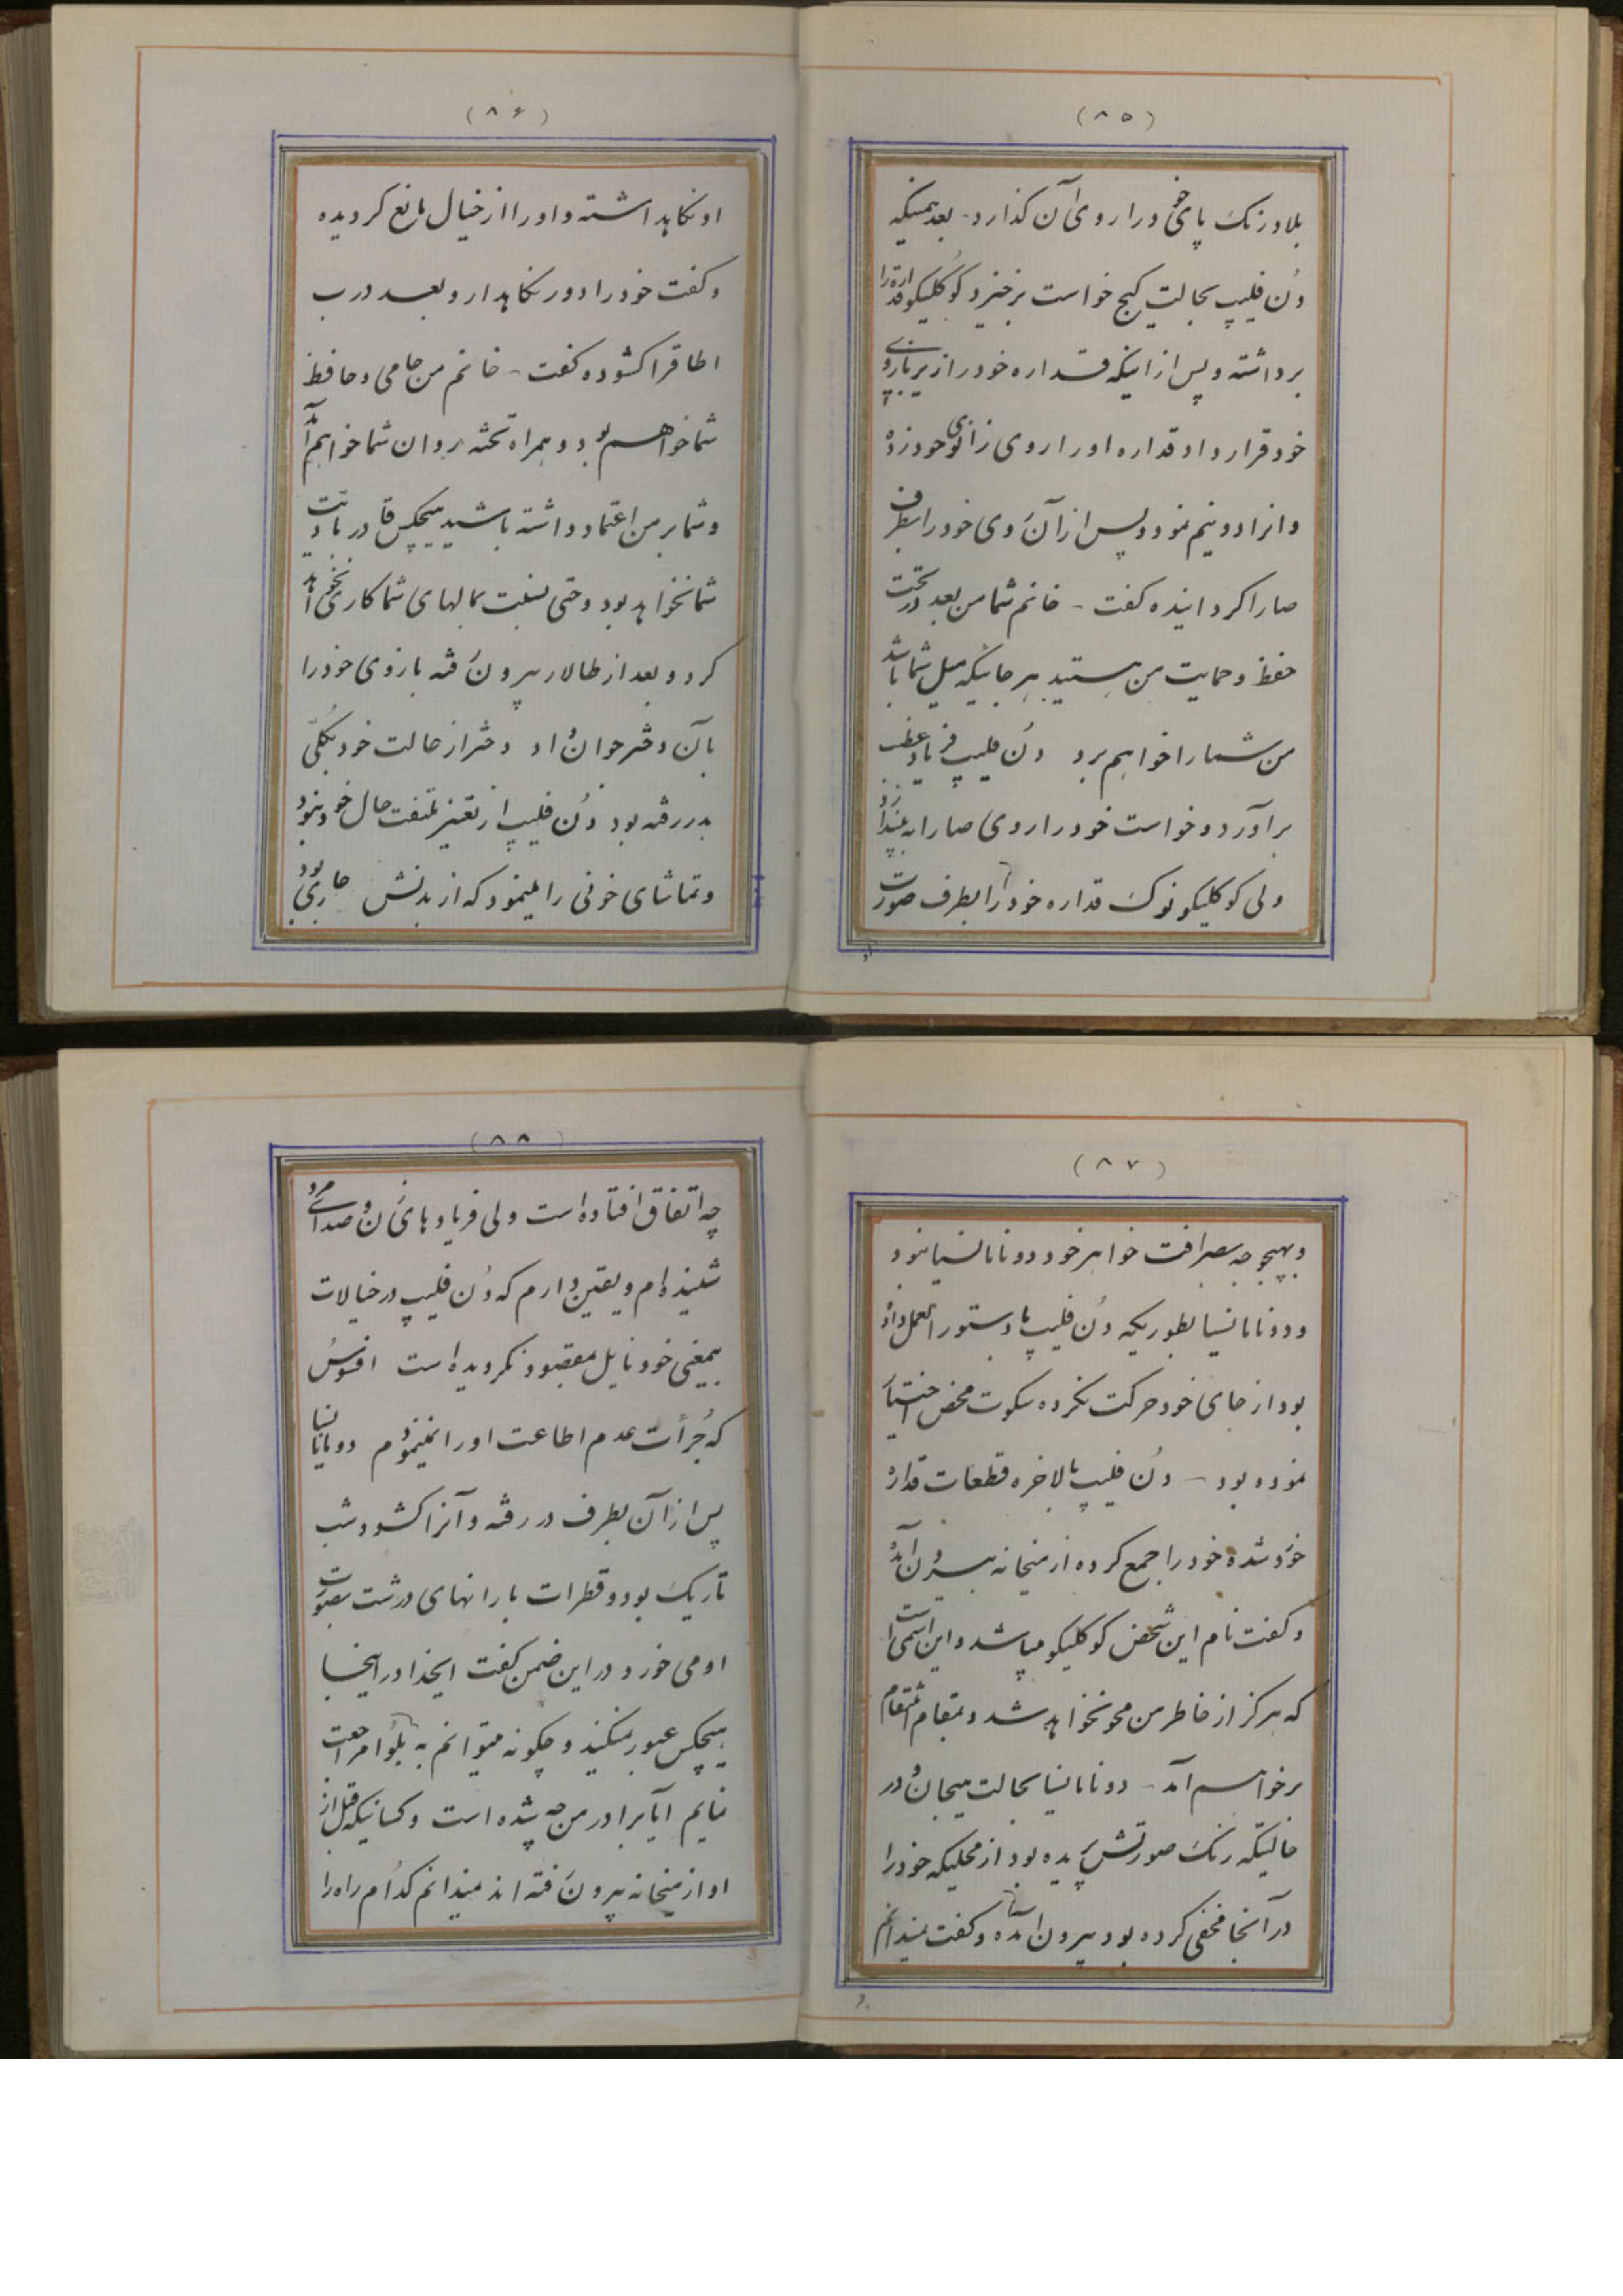 (۸۵)
بلادرنک پای خود را روی آن کذارد - بعد همینکه
دُن فلیپ بحالت کیج خواست برخیزد کوُکلیکو قداره را
برداشته و پس از اینکه قداره خود را زیر بازوی
خود قرار داد قداره او را روی زانوی خود زده
و انرا دو نیم نمود و پس از آن روی خود را بطرف
صارا کردانیده کفت - خانم شما من بعد در تحت
حفظ و حمایت من هستید بهر جائیکه میل شما باشد
من شما را خواهم برد دُن فلیپ فریاد غضب
برآورد و خواست خود را روی صارا به بیندازد
ولی کوکلیکو نوک قداره خود را بطرف صورت
او
(۸۶)
او نکاهداشته و او را از خیال مانع کردیده
و کفت خود را دور نکاهدار و بعد درب
اطاقرا کشوده کفت - خانم من حامی و حافظ
شما خواهم بود و همراه تخته روان شما خواهم آمد
و شما بر من اعتماد داشته باشید هیچکس قادر باذیت
شما نخواهد بود و حتی نسبت بمالهای شما کاری نخواهد
کرد و بعد از طالار بیرون رفته بازوی خود را
بآن دختر جوان داد دختر از حالت خود بکلّی
بدر رفته بود دُن فلیپ از تغیر ملتفت حال خود نبود
و تماشای خونی را مینمود که از بدنش جاری بود
(۸۷)
و بهیچوجه بصرافت خواهر خود دونامانسیا نبود
و دونامانسیا بطوریکه دُن فلیپ باو دستورالعمل داده
بود از جای خود حرکت نکرده سکوت محض اختیار
نموده بود - دُن فلیپ بالاخره قطعات قداره
خورد شده خود را جمع کرده از میخانه بیرون آمده
و کفت نام این شخص کوکلیکو میباشد و این اسمی است
که هرکز از خاطر من محو نخواهد شد و بمقام انتقام
برخواهم آمد - دونامانسیا بحالت هیجان و در
حالتیکه رنک صورتش پریده بود از محلیکه خود را
در آنجا مخفی کرده بود بیرون آمده و کفت نمیدانم
(۸۸)
چه اتفاق افتاده است ولی فریادهای زن و صدای مرد
شنیده‌ام و یقین دارم که دُن فلیپ در خیالات
بیمعنی خود نایل بمقصود نکردیده است افسوس
که جُرأت عدم اطاعت او را نمینمودم دونامانسیا
پس از آن بطرف در رفته و آنرا کشود و شب
تاریک بود و قطرات بارانهای درشت بصورت
او می خورد و در این ضمن کفت ایخدا در اینجا
هیچکس عبور نمیکند و چکونه میتوانم به بلوُا مراجعت
نمایم آیا برادر من چه شده است و کسانیکه قبل از
او از میخانه بیرون رفته‌اند نمیدانم کدُام راه را